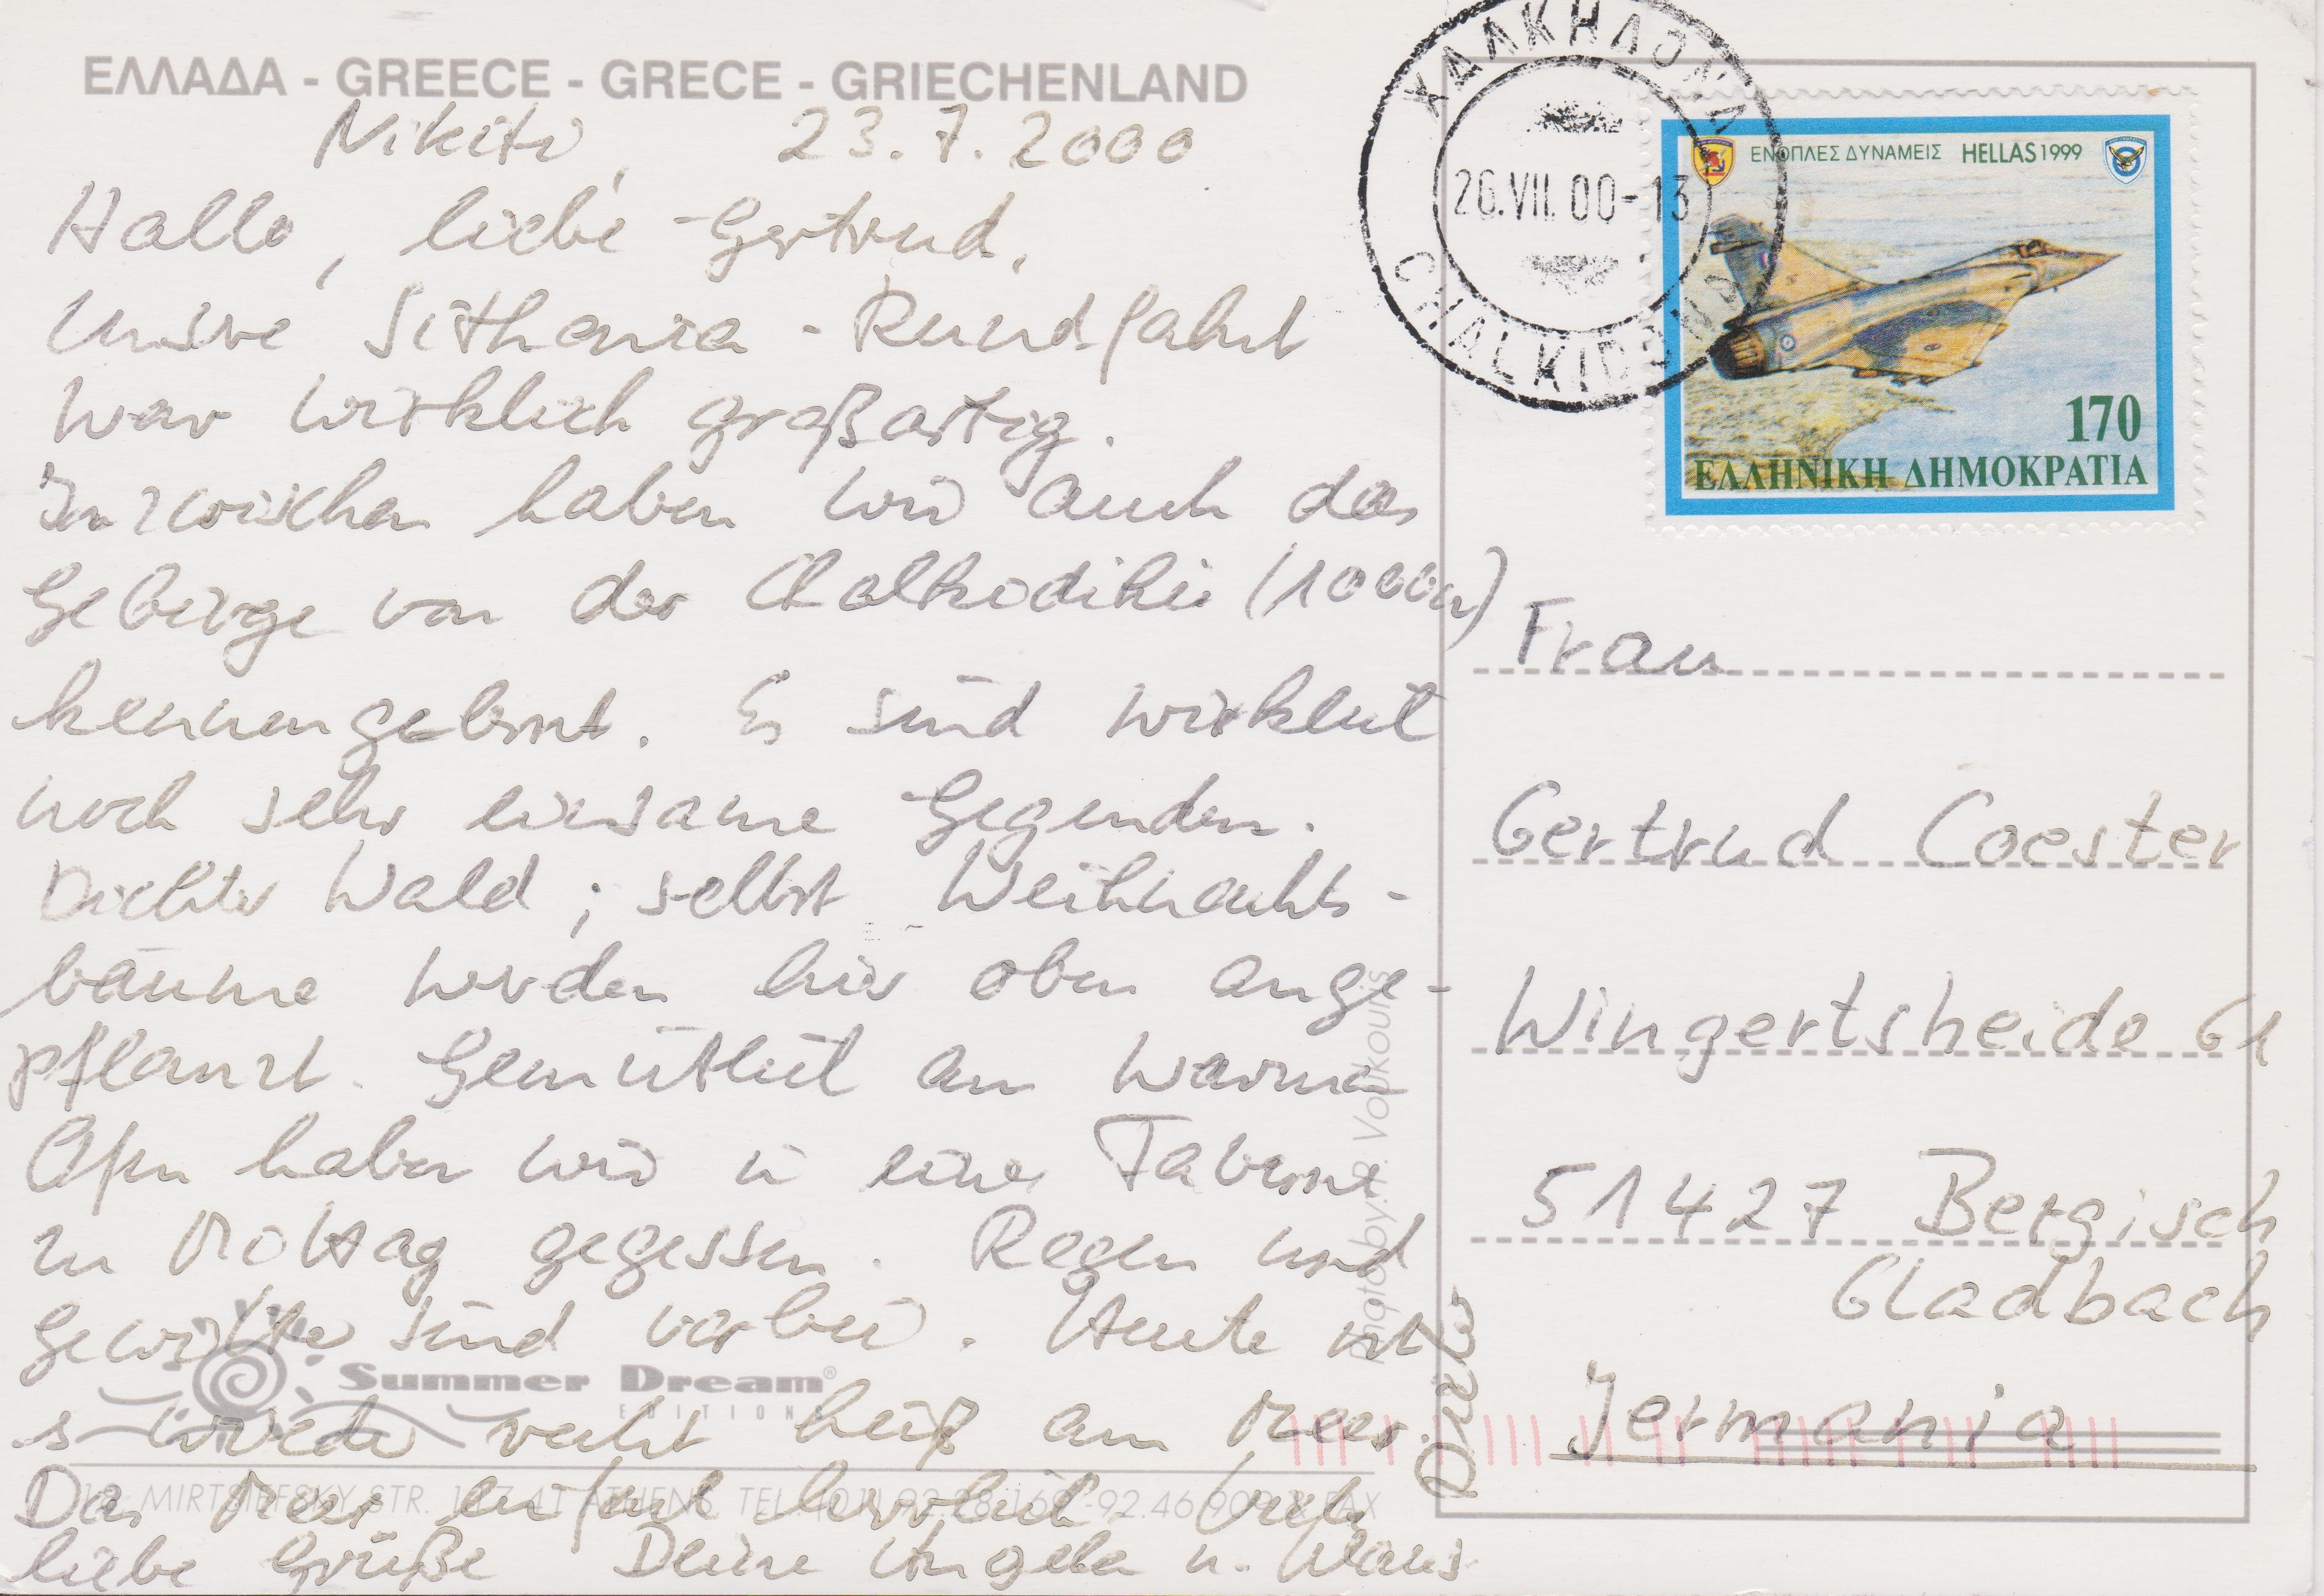 ΕΛΛΑΔΑ - GREECE - GRECE - GRIECHENLAND
Nikiti, 23.7.2000
Hallo, liebe Gertrud,
unsre Sithonia-Rundfahrt
war wirklich großartig.
Inzwischen haben wir auch das
Gebirge von der Chalkidiki (1000m)
kennengelernt. Es sind wirklich
noch sehr einsame Gegenden.
Dichter Wald; selbst Weihnachts-
bäume werden hier oben ange-
pflanzt. Gemütlich am warmen
Ofen haben wir in einer Taverne
zu Mittag gegessen. Regen und
Gewitter sind vorbei. Heute ist
s wieder recht heiß am Meer.
Das Meer einfach herrlich. Viele
liebe Grüße Deine Angela u. Klaus
Summer Dream®
EDITIONS
MIRTSIEFSKY STR. 117 41 ATHENS, TEL. (01) 92.28.169 -92.46.909 & FAX
Photo by: R. Vopkouris
ΧΑΛΚΗΔΟΝΑ
26.VII.00-13
ΕΝΟΠΛΕΣ ΔΥΝΑΜΕΙΣ HELLAS 1999
170
ΕΛΛΗΝΙΚΗ ΔΗΜΟΚΡΑΤΙΑ
Frau
Gertrud Coester
Wingertsheide 61
51427 Bergisch
Gladbach
Jermania